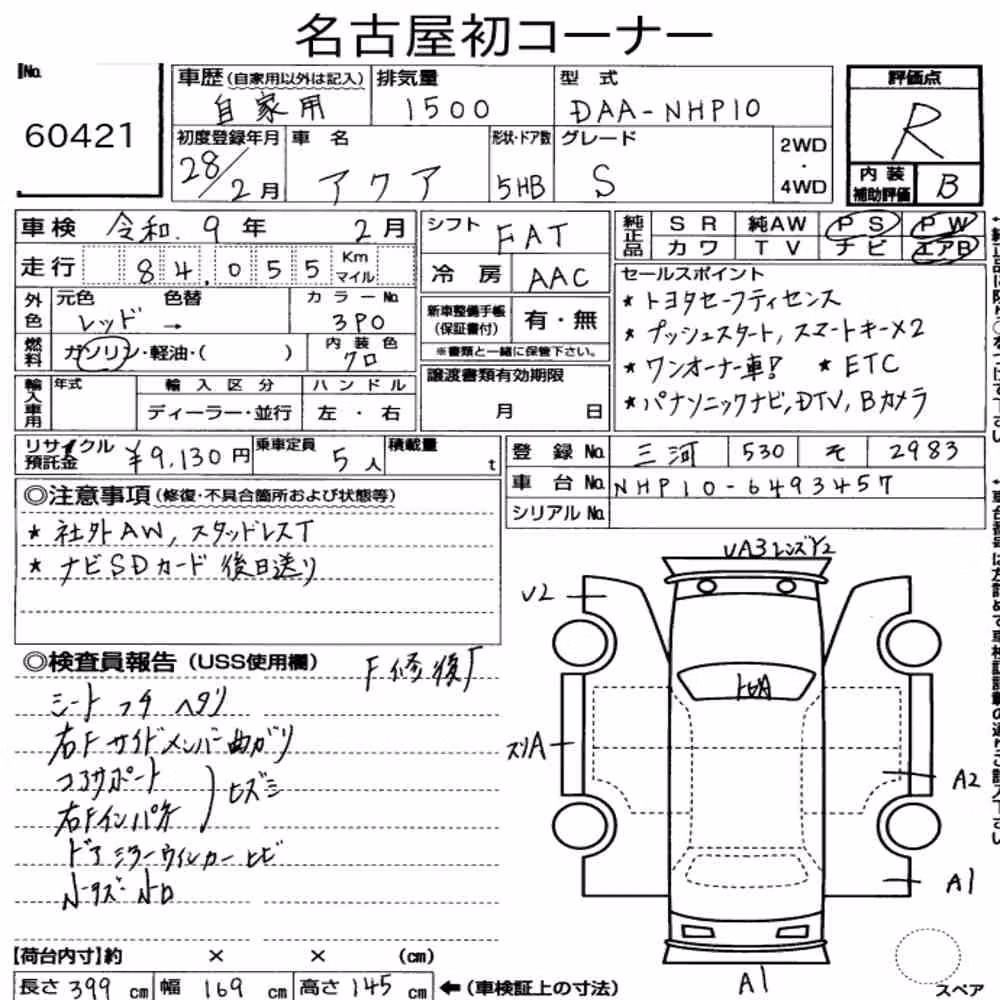 名古屋初コーナー
No. 60421
車歴(自家用以外は記入) 自家用
排気量 1500
型式 DAA-NHP10
評価点 R
内装補助評価 B
初度登録年月 28/2月
車名 アクア
形状・ドア数 5HB
グレード S
2WD・4WD
車検 令和.9年 2月
シフト FAT
純正品 SR 純AW PS PW
カワ TV ナビ エアB
走行 84,055 Km マイル
冷房 AAC
外色 元色 レッド → 色替
カラーNo. 3P0
新車整備手帳(保証書付) 有・無
※書類と一緒に保管下さい。
燃料 ガソリン・軽油・( )
内装色 クロ
セールスポイント
★ トヨタセーフティセンス
★ プッシュスタート, スマートキー×2
★ ワンオーナー車! ★ ETC
★ パナソニックナビ, DTV, Bカメラ
輸入車用 年式 輸入区分 ディーラー・並行
ハンドル 左・右
譲渡書類有効期限 月 日
リサイクル預託金 ¥9,130円
乗車定員 5人
積載量 t
登録No. 三河 530 そ 2983
車台No. NHP10-6493457
シリアルNo.
◎注意事項(修復・不具合箇所および状態等)
★ 社外AW, スタッドレスT
★ ナビSDカード 後日送り
◎検査員報告(USS使用欄) F修後
シート コゲ ヘタリ
右Fサイドメンバー曲がり
コアサポート
右Fインパネ ヒズミ
ドアミラーウインカー ヒビ
UA3 レンズY2
U2
トビA
スリA
A2
A1
A1
スペア
【荷台内寸】約 × × (cm)
長さ 399 cm 幅 169 cm 高さ 145 cm ←(車検証上の寸法)